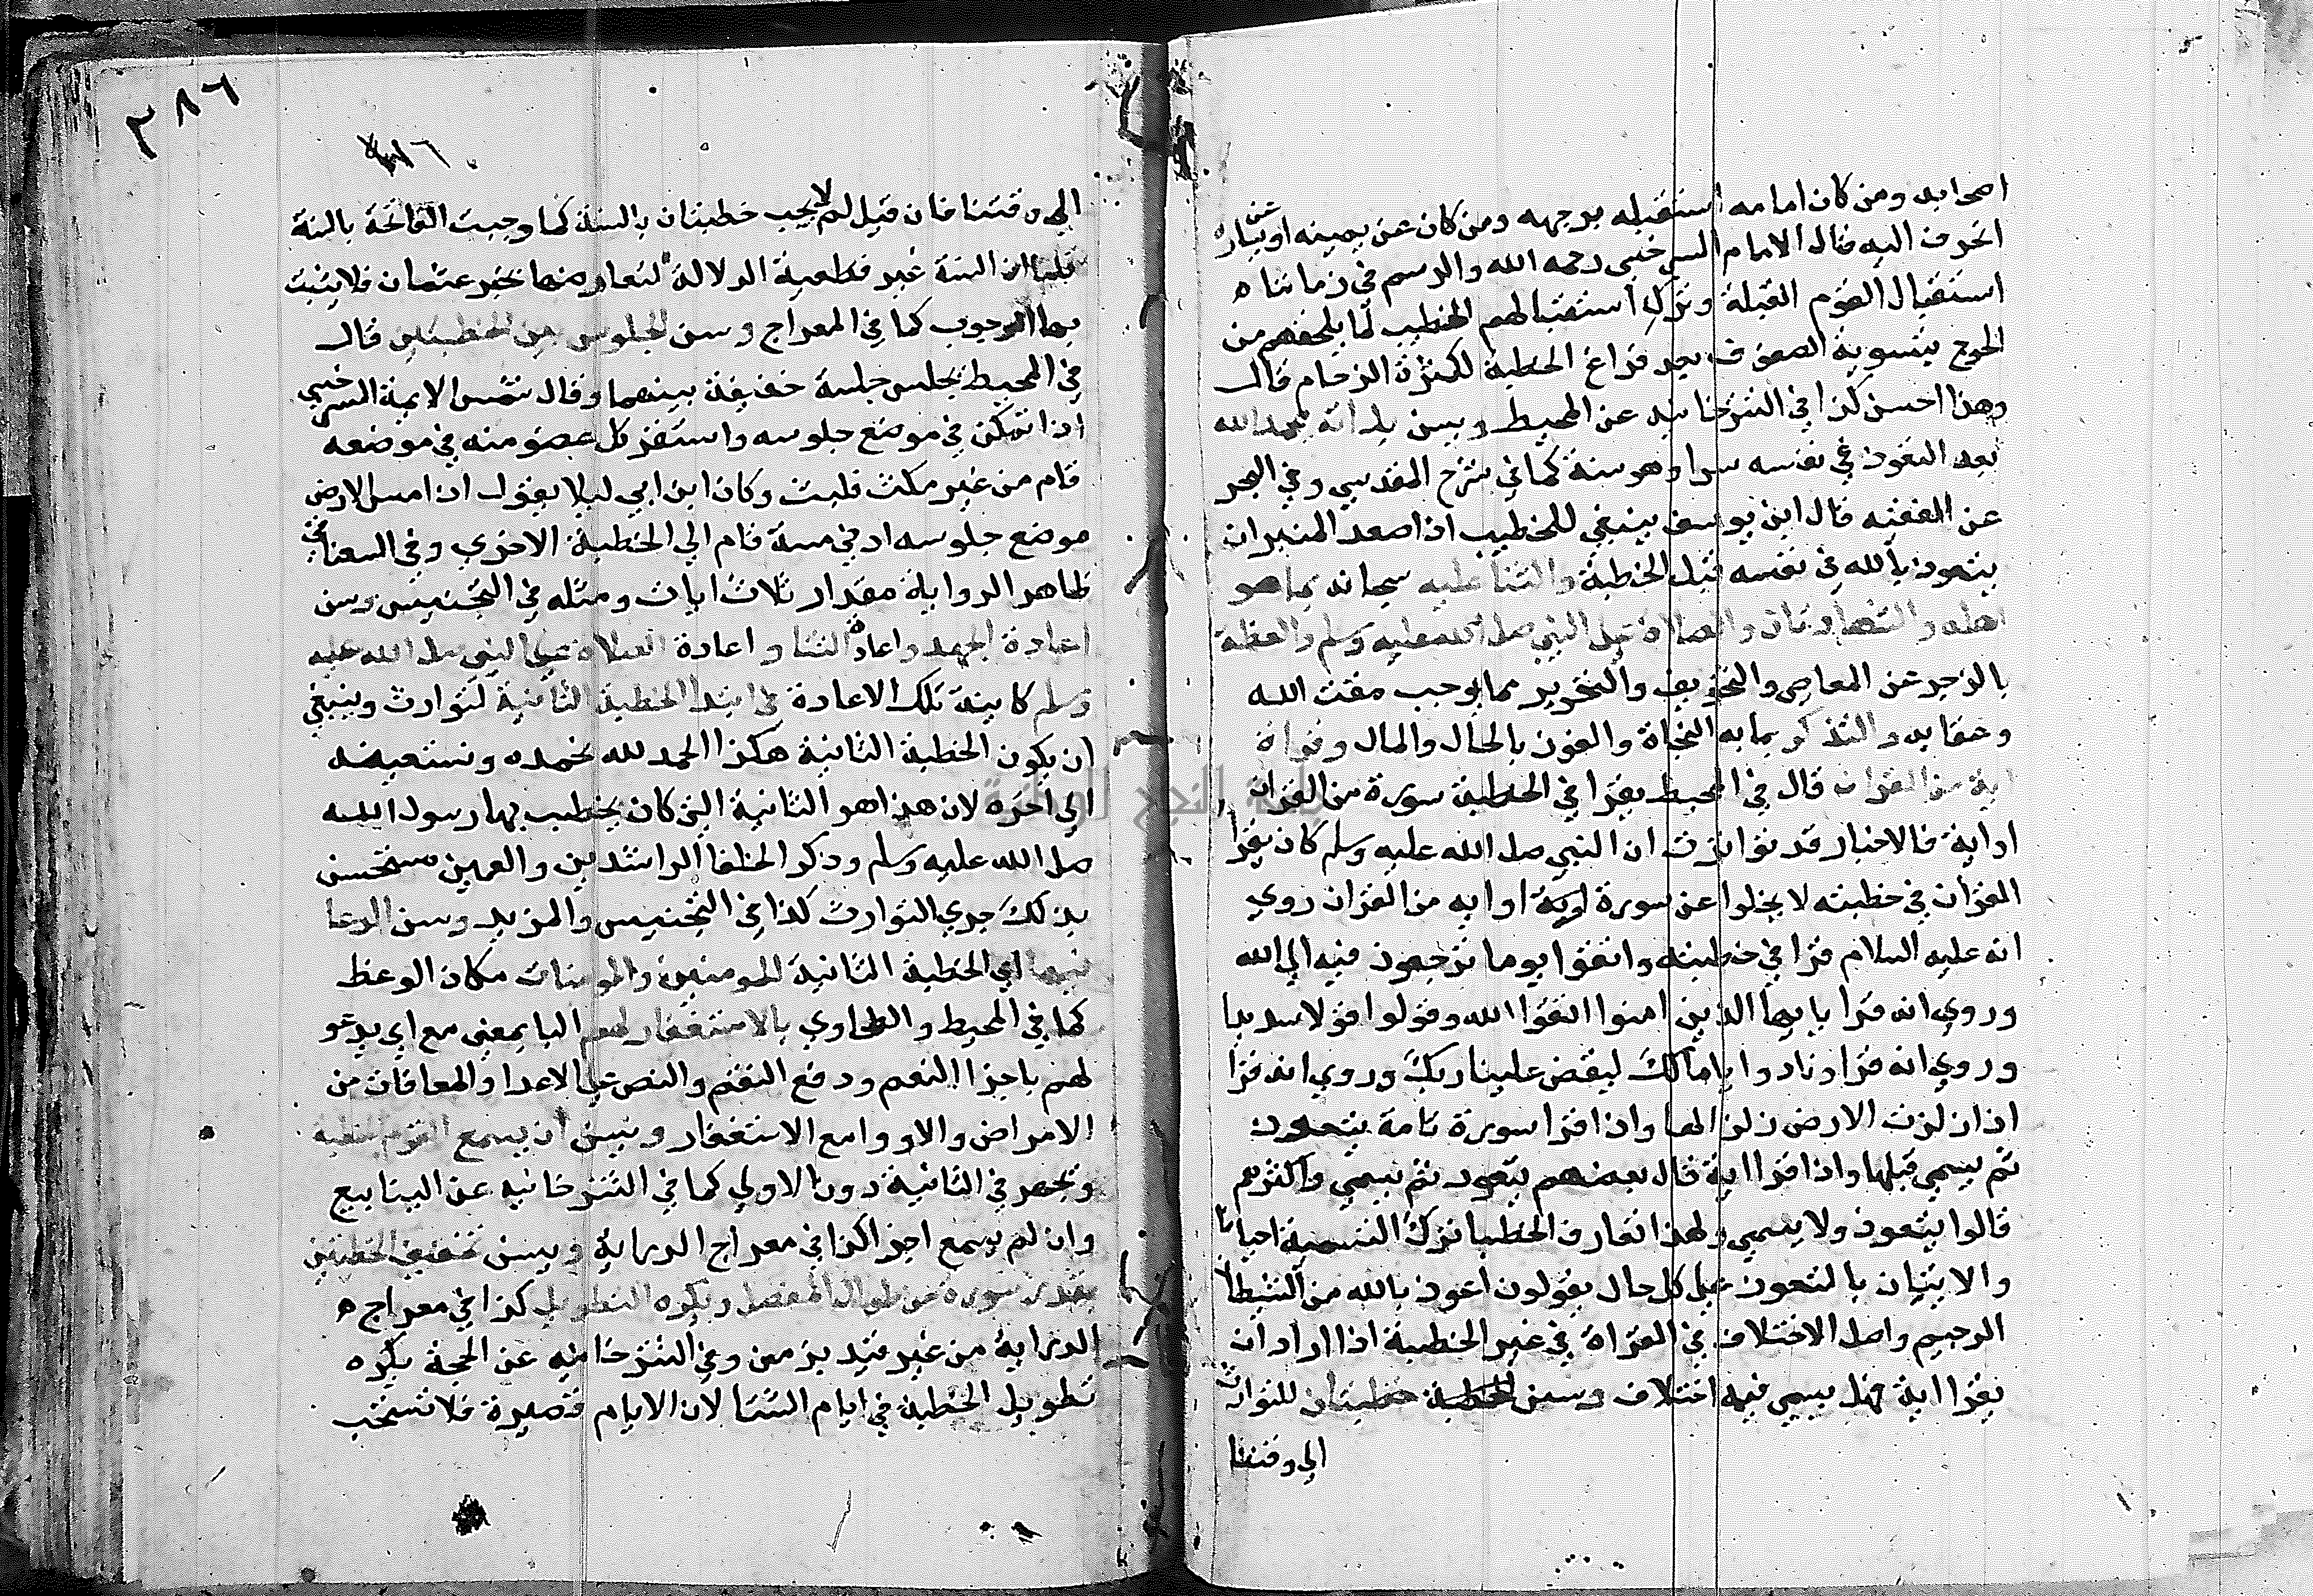 اصحابه ومن كان امامه استقبله بوجهه ومن كان عن يمينه او عن يساره
انحرف اليه قال الامام السرخسي رحمه الله والرسم في زماننا ه
استقبال القوم القبلة وترك استقبالهم الخطيب لما يلحقهم من
الحرج بتسوية الصفوف بعد فراغ الخطبة لكثرة الزحام قال
وهذا احسن كذا في التترخانيه عن المحيط ويسن بداته بحمد الله
بعد التعوذ في نفسه سرا وهو سنة كما في شرح المقدسي وفي البحر
عن القنيه قال ابن يوسف ينبغي للخطيب اذا صعد المنبر ان
يتعوذ بالله في نفسه قبل الخطبة والثنا عليه سبحانه بما هو
اهله والشهادتان والصلاة على النبي صلى الله عليه وسلم والعظة
بالزجر عن المعاصي والتخويف والتحذير مما يوجب مقت الله
وعقابه والتذكر بما به النجاة والفوز بالحال والمال وقراة
اية من القران قال في المحيط يقرا في الخطبة سورة من القران
او اية فالاخبار قد تواترت ان النبي صلى الله عليه وسلم كان يقرا
القران في خطبته لا يخلوا عن سورة او ايه من القران روي
انه عليه السلام قرا في خطبته واتقوا يوما ترجعون فيه الى الله
وروي انه قرا يا ايها الذين امنوا اتقوا الله وقولوا قولا سديدا
وروي انه قرا ونادوا يا مالك ليقض علينا ربك وروي انه قرا
اذا زلزت الارض زلزالها واذا قرا سورة تامة يتعوذ
ثم يسمي قبلها واذا قرا اية قال بعضهم يتعوذ ثم يسمي واكثرهم
قالوا يتعوذ ولا يسمي ولهذا تعارف الخطبا ترك التسمية احيانا
والاتيان بالتعوذ على كل حال يقولون اعوذ بالله من الشيطان
الرجيم واصل الاختلاف في القراة في غير الخطبة اذا اراد ان
يقرا اية هل يسمي فيه اختلاف وسن خطبتان للتوارث
الى وقتنا
٣٨٦
الى وقتنا فان قيل لم لا يجب خطبتان بالسنة كما وجبت الفاتحة بالسنة
قلنا ان السنة غير قطعية الدلالة لتعارضها بخبر عثمان فلا يثبت
بها الوجوب كما في المعراج وسن الجلوس بين الخطبتين قال
في المحيط يجلس جلسة خفيفة بينهما وقال شمس الايمة السرخسي
اذا تمكن في موضع جلوسه واستقر كل عضو منه في موضعه
قام من غير مكث ولبث وكان ابن ابي ليلا يقول اذا مس الارض
موضع جلوسه ادني مسة قام الي الخطبة الاخري وفي السغناقي
ظاهر الرواية مقدار ثلاث ايات ومثله في التجنيس وسن
اعادة الحمد واعادة الثنا واعادة الصلاة على النبي صلى الله عليه
وسلم كاينة تلك الاعادة في ابتدا الخطبة الثانية لتوارث وينبغي
ان يكون الخطبة الثانية هكذا الحمد لله نحمده ونستعينه
الي اخره لان هذا هو الثانية التي كان يخطب بها رسول الله
صلى الله عليه وسلم وذكر الخلفا الراشدين والعمين مستحسن
بذلك جري التوارث كذا في التجنيس والمزيد وسن الدعا
فيها اي الخطبة الثانية للمومنين والمومنات مكان الوعظ
كما في المحيط و الطحاوي بالاستغفار لهم البا بمعني مع اي يدعو
لهم باجزا النعم ودفع النقم والنصر على الاعدا والمعافات من
الامراض والادوا مع الاستغفار ويسن ان يسمع القوم الخطبة
ويجهر في الثانية دون الاولي كما في التترخانيه عن الينابيع
وان لم يسمع اجزا كذا في معراج الدراية ويسن تخفيف الخطبتين
بقدر سورة من طوال المفصل ويكره التطويل كذا في معراج ه
الدراية من غير قيد بزمن وفي التترخانيه عن الحجة يكره
تطويل الخطبة في ايام الشتا لان الايام قصيرة فلا تستحب